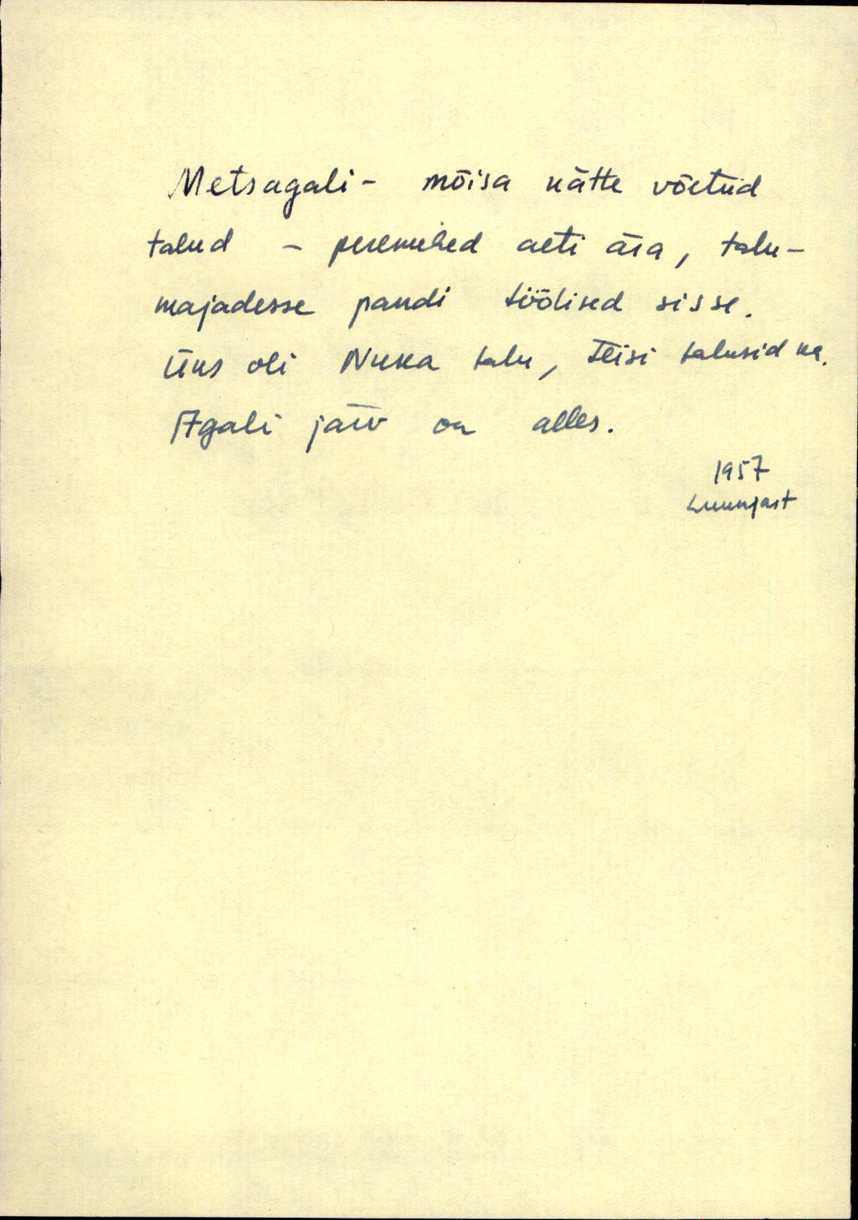 Metsagali - mõisa kätte võetud
talud - peremehed aeti ära, talu-
majadesse pandi töölised sisse.
Üks oli Nuka talu, teisi talusid ka.
Agali järv on alles.
1957
Luunjast